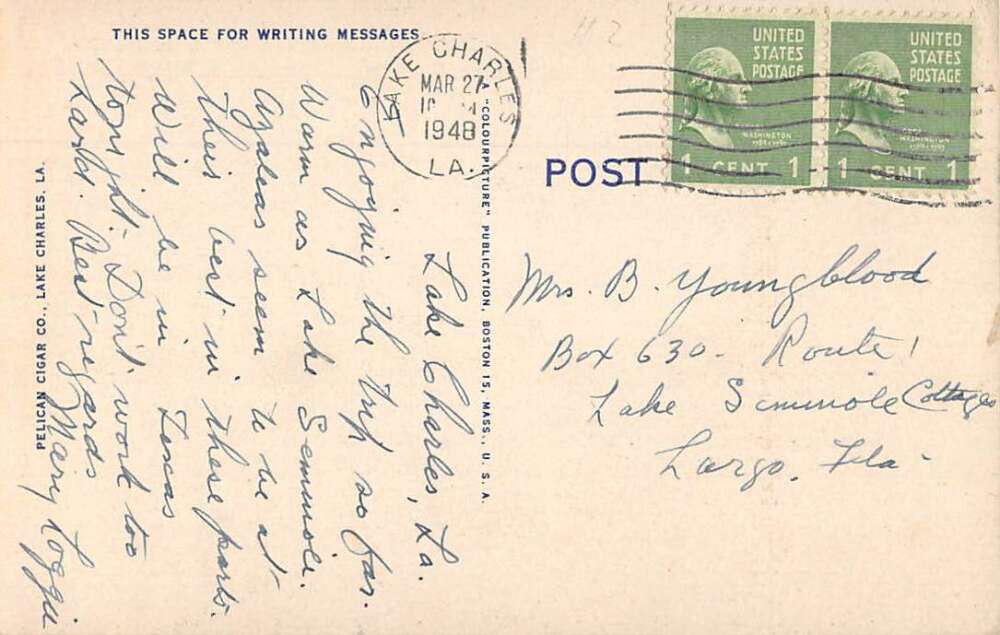 THIS SPACE FOR WRITING MESSAGES
LAKE CHARLES
MAR 27
1948
LA.
UNITED
STATES
POSTAGE
WASHINGTON
1 CENT 1
UNITED
STATES
POSTAGE
WASHINGTON
1 CENT 1
POST
Lake Charles, La.
Enjoying the trip so far.
Warm as Lake Seminole.
Azaleas seem to be at
their best in these parts.
Will be in Texas
tonight. Don't work too
hard. Best regards
Mary
Mrs. B. Youngblood
Box 630 - Route 1
Lake Seminole Cottages
Largo, Fla -
A "COLOURPICTURE" PUBLICATION, BOSTON 15, MASS., U. S. A.
PELICAN CIGAR CO., LAKE CHARLES, LA.